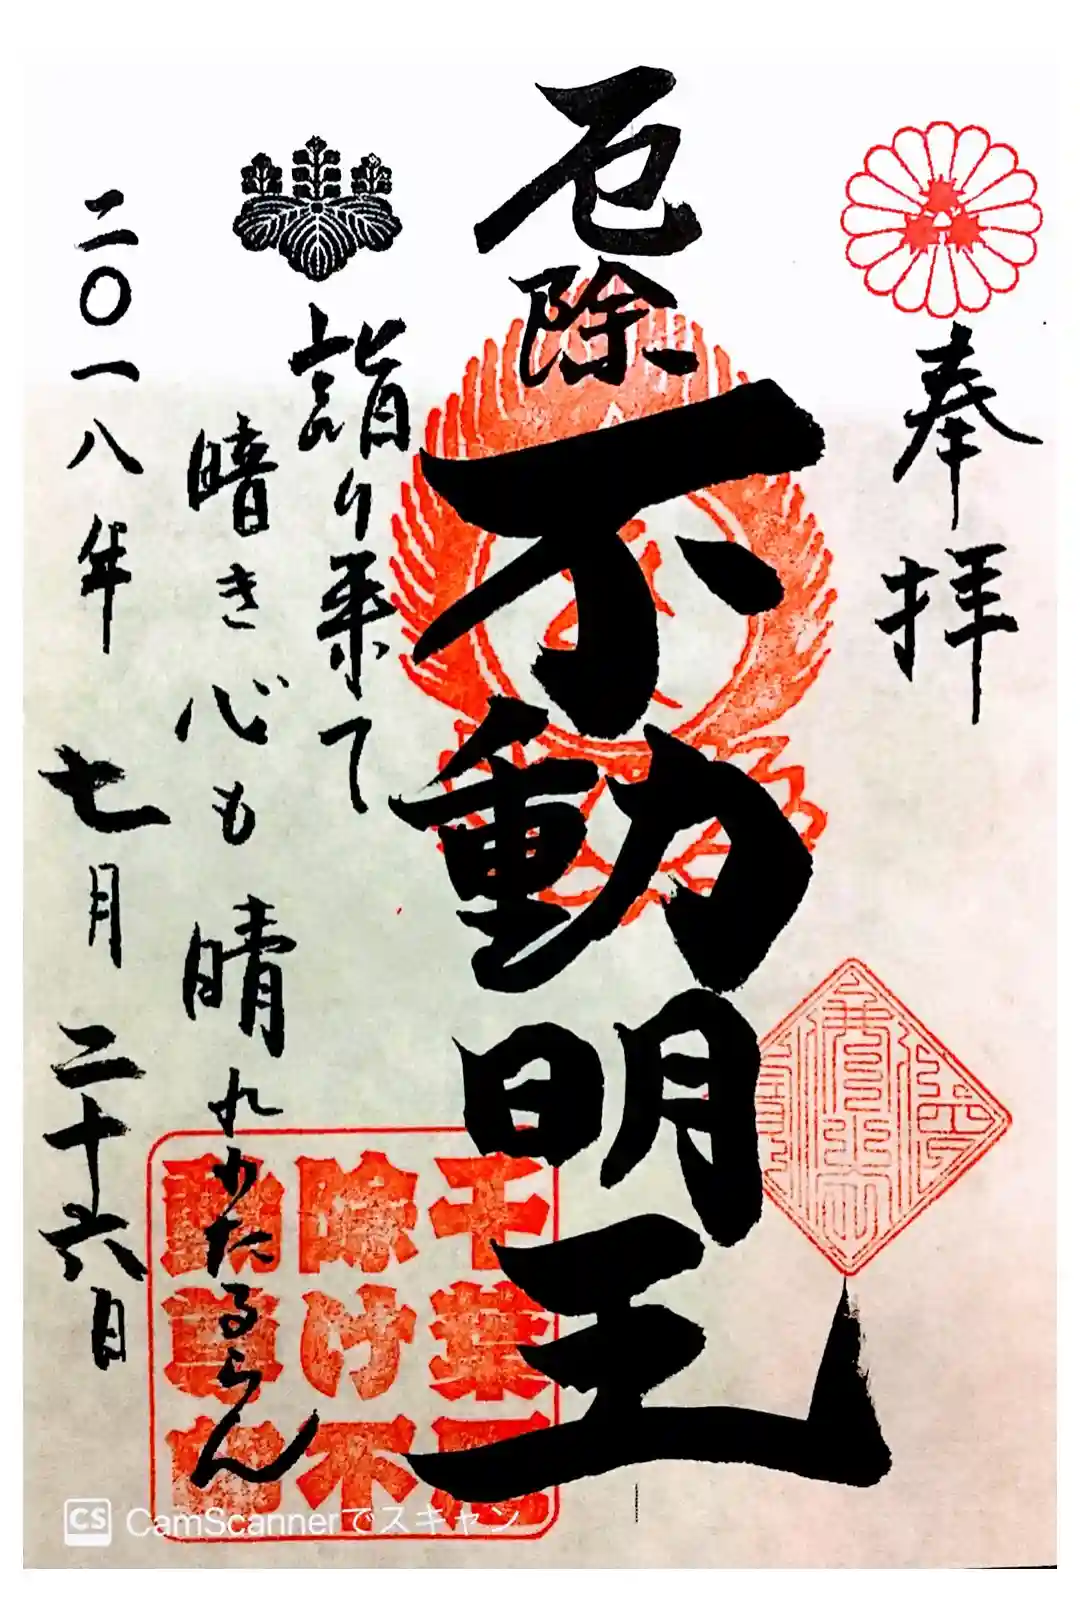 奉拝
厄除
不動明王
詣り来て
暗き心も晴れわたるらん
二〇一八年七月二十六日
千葉厄
除け不
動尊
CS CamScannerでスキャン